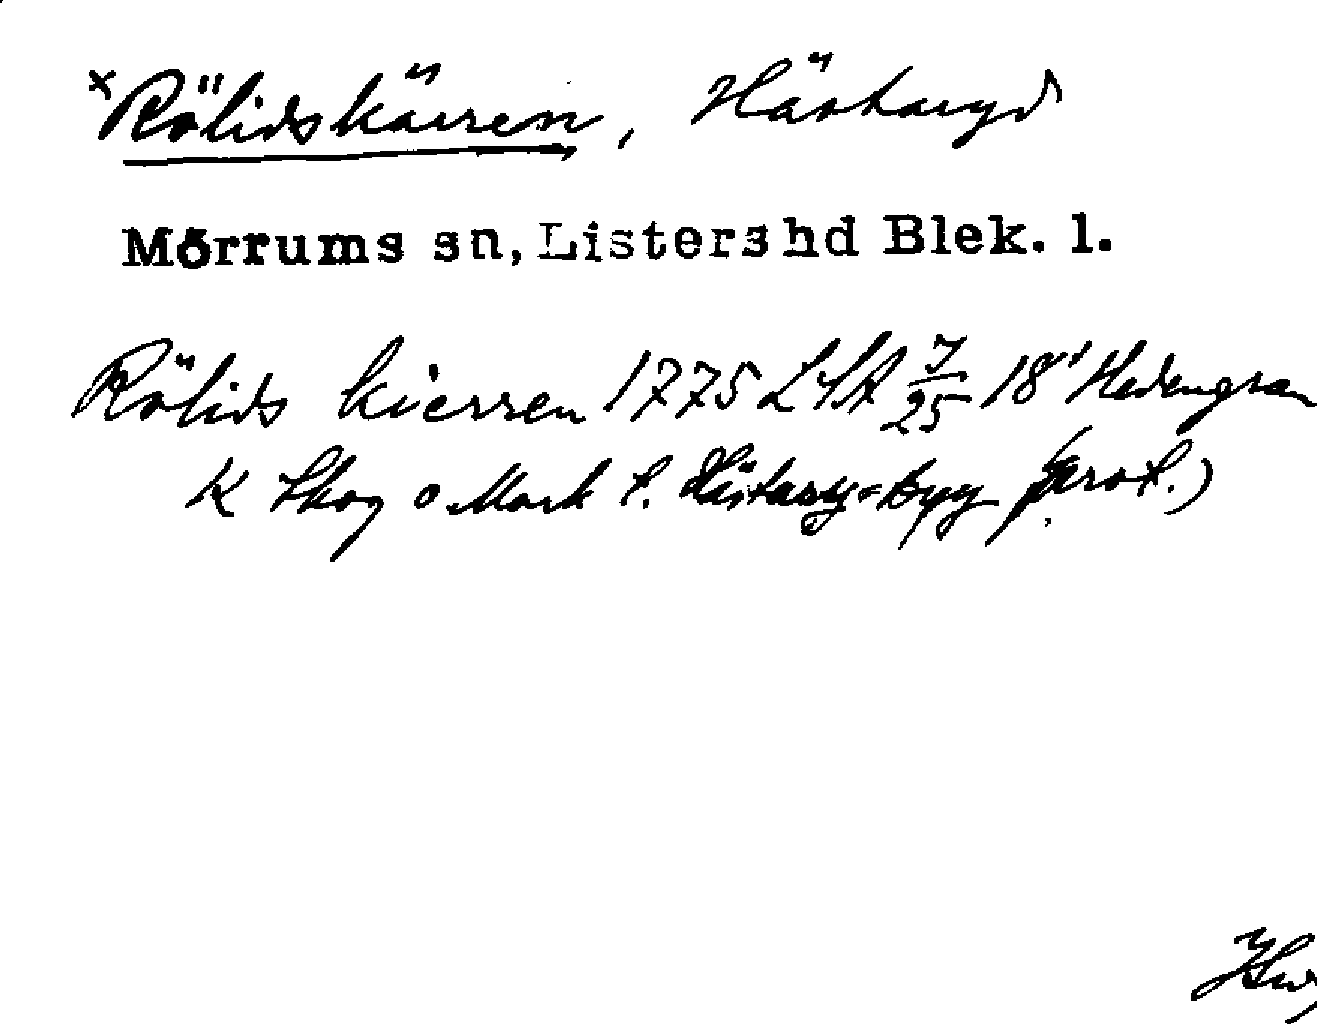 × Rölidskärren, Hästaryd
Mörrums sn, Listers hd Blek. l.
Rölids kierren 1775 LSA 7/25 18' Hedengran
K Skog o Mark t. Hästary=byy prot.)